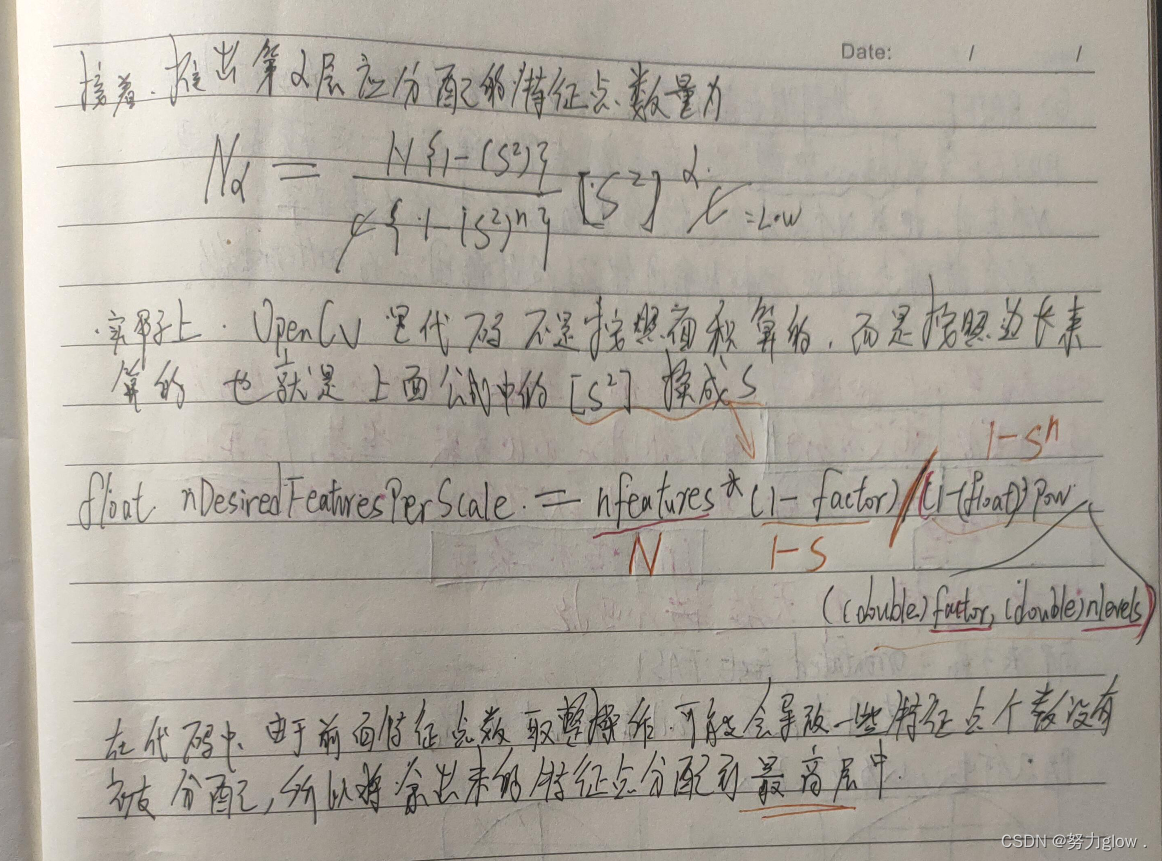 Date: / /
接着.推出第α层应分配的特征点数量为
Nα = N{1-(S²)} / C{1-(S²)ⁿ} [S²]^α C =LOW
实际上. OpenCV里代码不是按照面积算的,而是按照边长来
算的 也就是上面公式中的[S²] 换成S
1-Sⁿ
float nDesiredFeaturesPerScale = nfeatures*(1-factor)/(1-(float)pow
N 1-S
((double)factor,(double)nlevels)
在代码中.由于前面特征点数取整操作.可能会导致一些特征点个数没有
被分配,所以将余出来的特征点分配到最高层中.
CSDN @努力glow .